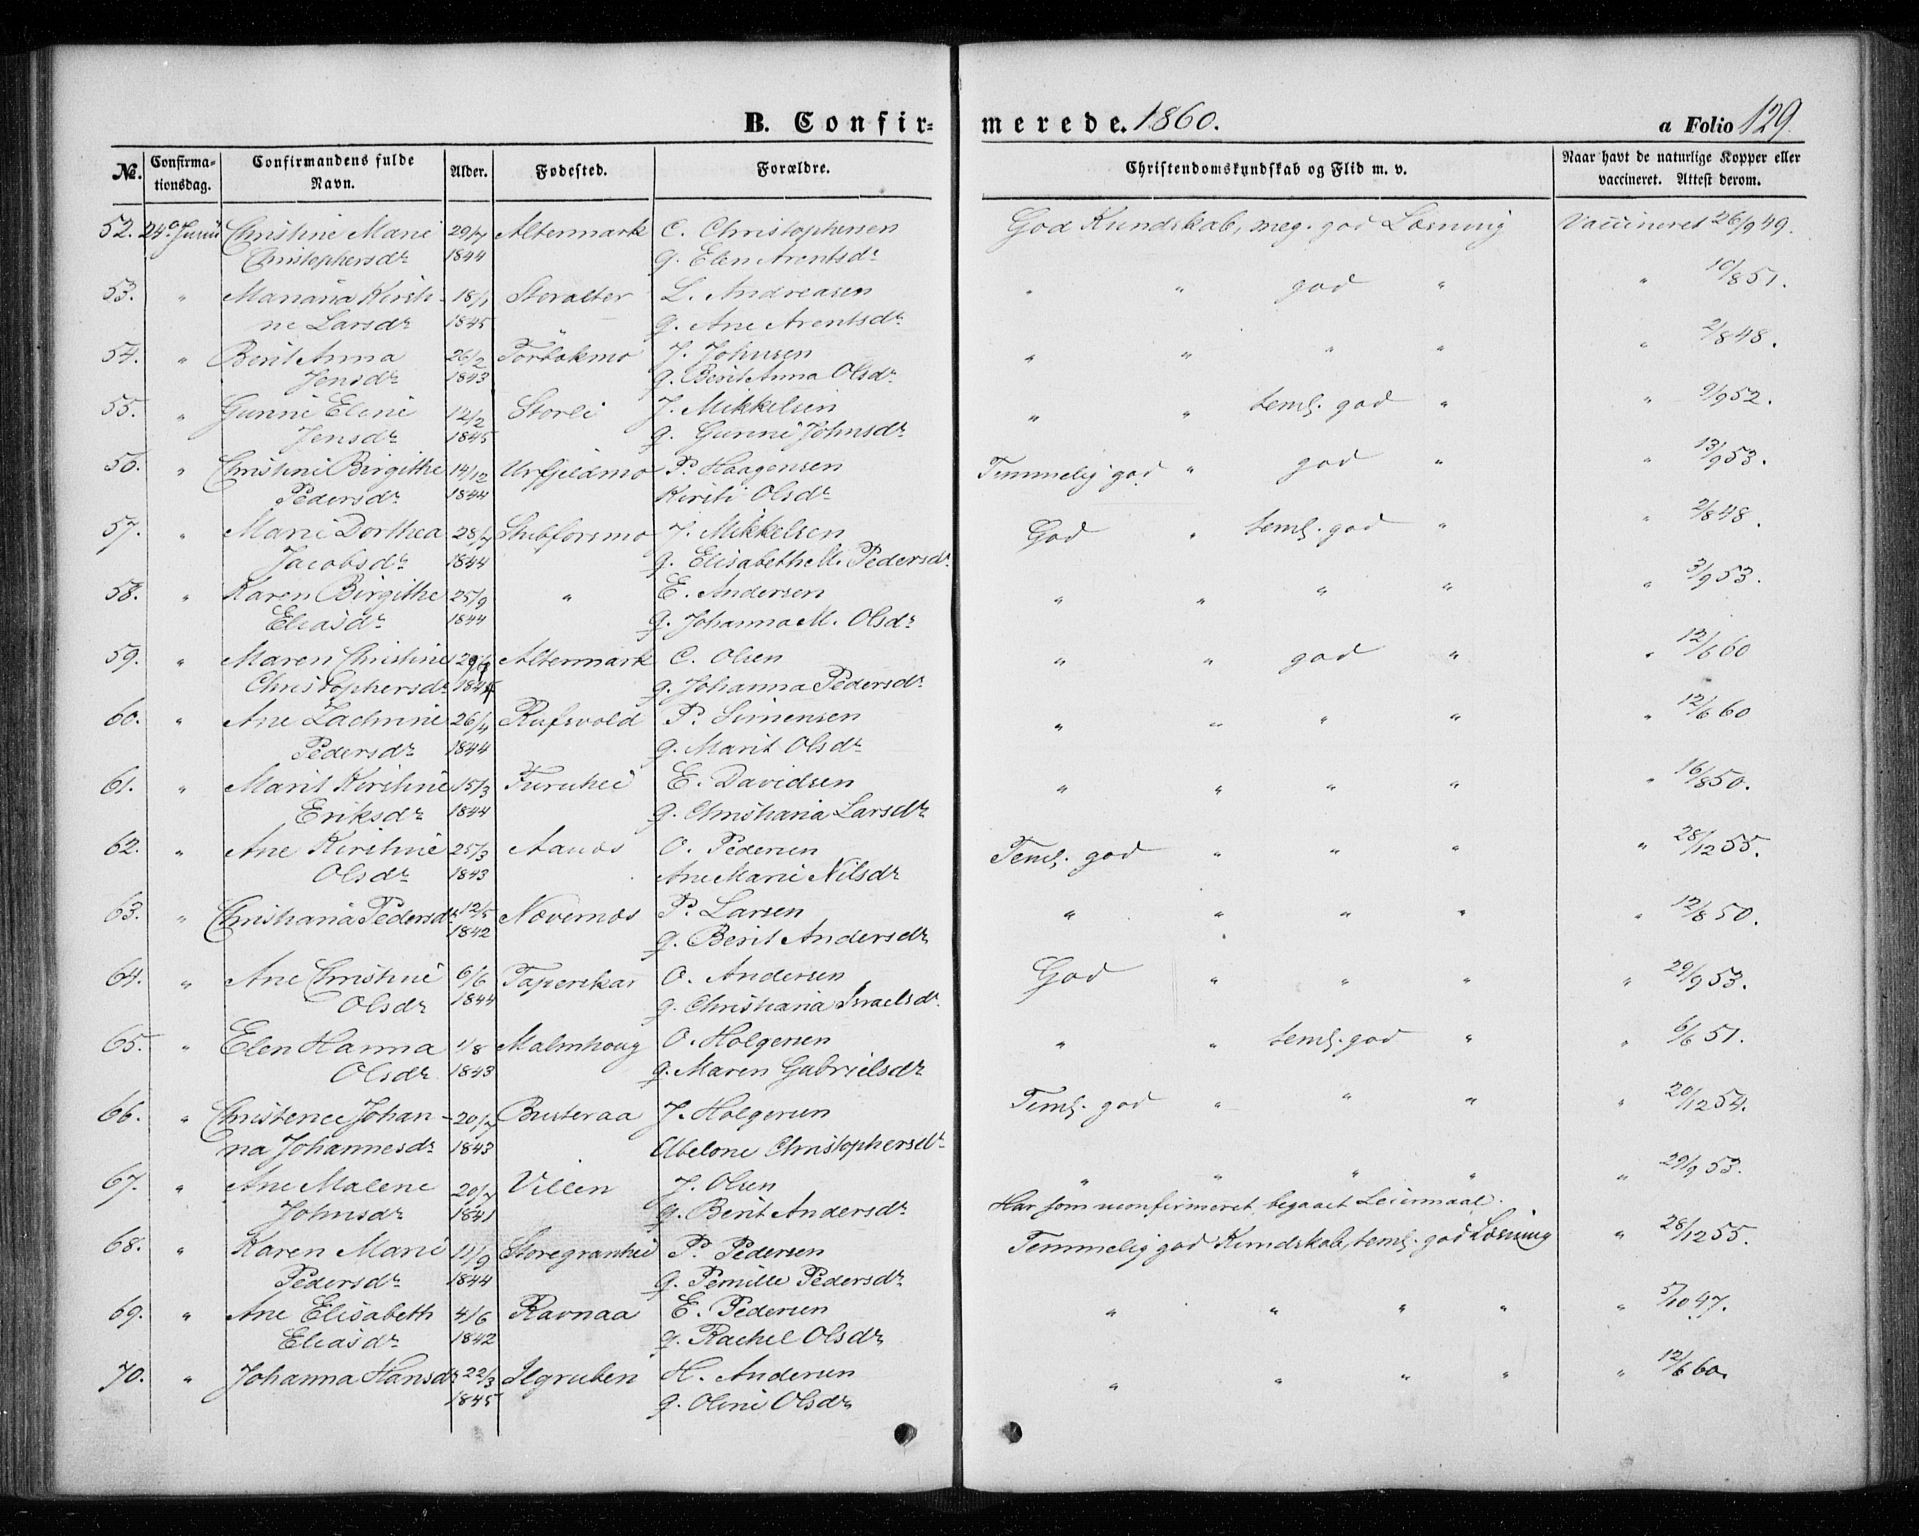 B. Confir=
merede. 1860.
a Folio 129.
No. Confirma- Confirmandens fulde Alder. Fødested. Forældre. Christendomskundskab og Flid m. v. Naar havt de naturlige Kopper eller
tionsdag. Navn. vaccineret. Attest derom.
52. 24de Junii Christine Marie 29/7 Altermark C. Christophersen God Kundskab, meg. god Læsning Vaccineret 26/9 49.
Christophersdr 1844 g. Elen Arentsdr
53. " Mariana Kirsti- 18/1 Storalter L. Andreasen " " god " " 10/8 51.
ne Larsdr 1845 g. Ane Arentsdr
54. " Berit Anna 26/2 Torbakmo J. Johnsen " " " " " 2/8 48.
Jensdr 1843 g. Berit Anna Olsdr
55. " Gunni Elene 12/2 Storli J. Mikkelsen " " teml. god " " 9/9 52.
Jensdr 1845 g. Gunni Johnsdr
56. " Christine Birgithe 14/12 Urfjeldmo P. Haagensen Temmelig god " god " " 13/9 53.
Pedersdr 1844 Kirsti Olsdr
57. " Marie Dorthea 28/7 Stubforsmo J. Mikkelsen God " teml. god " " 2/8 48.
Jacobsdr 1844 g. Elisabeth M. Pedersdr
58. " Karen Birgithe 25/9 " E. Andersen " " " " " 3/9 53.
Eliasdr 1844 g. Johanna M. Olsdr
59. " Maren Christine Altermark C. Olsen " " god " " 12/6 60
Christophersdr g. Johanna Pedersdr
60. " Ane Zachrine 26/4 Rufsvold P. Simensen " " " " " 12/6 60
Pedersdr 1844 g. Marit Olsdr
61. " Marit Kirstine 15/3 Furuhei E. Davidsen " " " " " 16/8 50.
Eriksdr 1844 g. Christiana Larsdr
62. " Ane Kirstine 25/3 Aanæs O. Pedersen Teml. god " " " " 28/12 55.
Olsdr 1843 Ane Marie Nilsdr
63. " Christiana Pedersdr 12/5 Nævernæs P. Larsen " " " " " 12/8 50.
1842 g. Berit Andersdr
64. " Ane Christine 6/6 Taperskar O. Andersen God " " " " 29/9 53.
Olsdr 1844 g. Christiana Israelsdr
65. " Elen Hanna 1/8 Malmhoug O. Holgersen " " teml. god " " 6/6 51.
Olsdr 1843 g. Maren Gabrielsdr
66. " Christence Johan- 20/7 Busteraa J. Holgersen Teml. god " " " " 20/12 54.
na Johannesdr 1843 Abelone Christophersdr
67. " Ane Malene 20/7 Villen J. Olsen " " " " " 29/9 53.
Johnsdr 1841 g. Berit Andersdr Har som uconfirmeret begaaet Leiermaal.
68. " Karen Marie 11/9 Storegranhei P. Pedersen Temmelig god Kundskab, teml. god Læsning " 28/12 55.
Pedersdr 1844 g. Pernille Pedersdr
69. " Ane Elisabeth 4/6 Ravnaa E. Pedersen " " " " " 5/10 47.
Eliasdr 1842 g. Rachel Olsdr
70. " Johanna Hansdr 22/3 Ilgruben H. Andersen " " " " " 12/6 60.
1845 g. Oline Olsdr